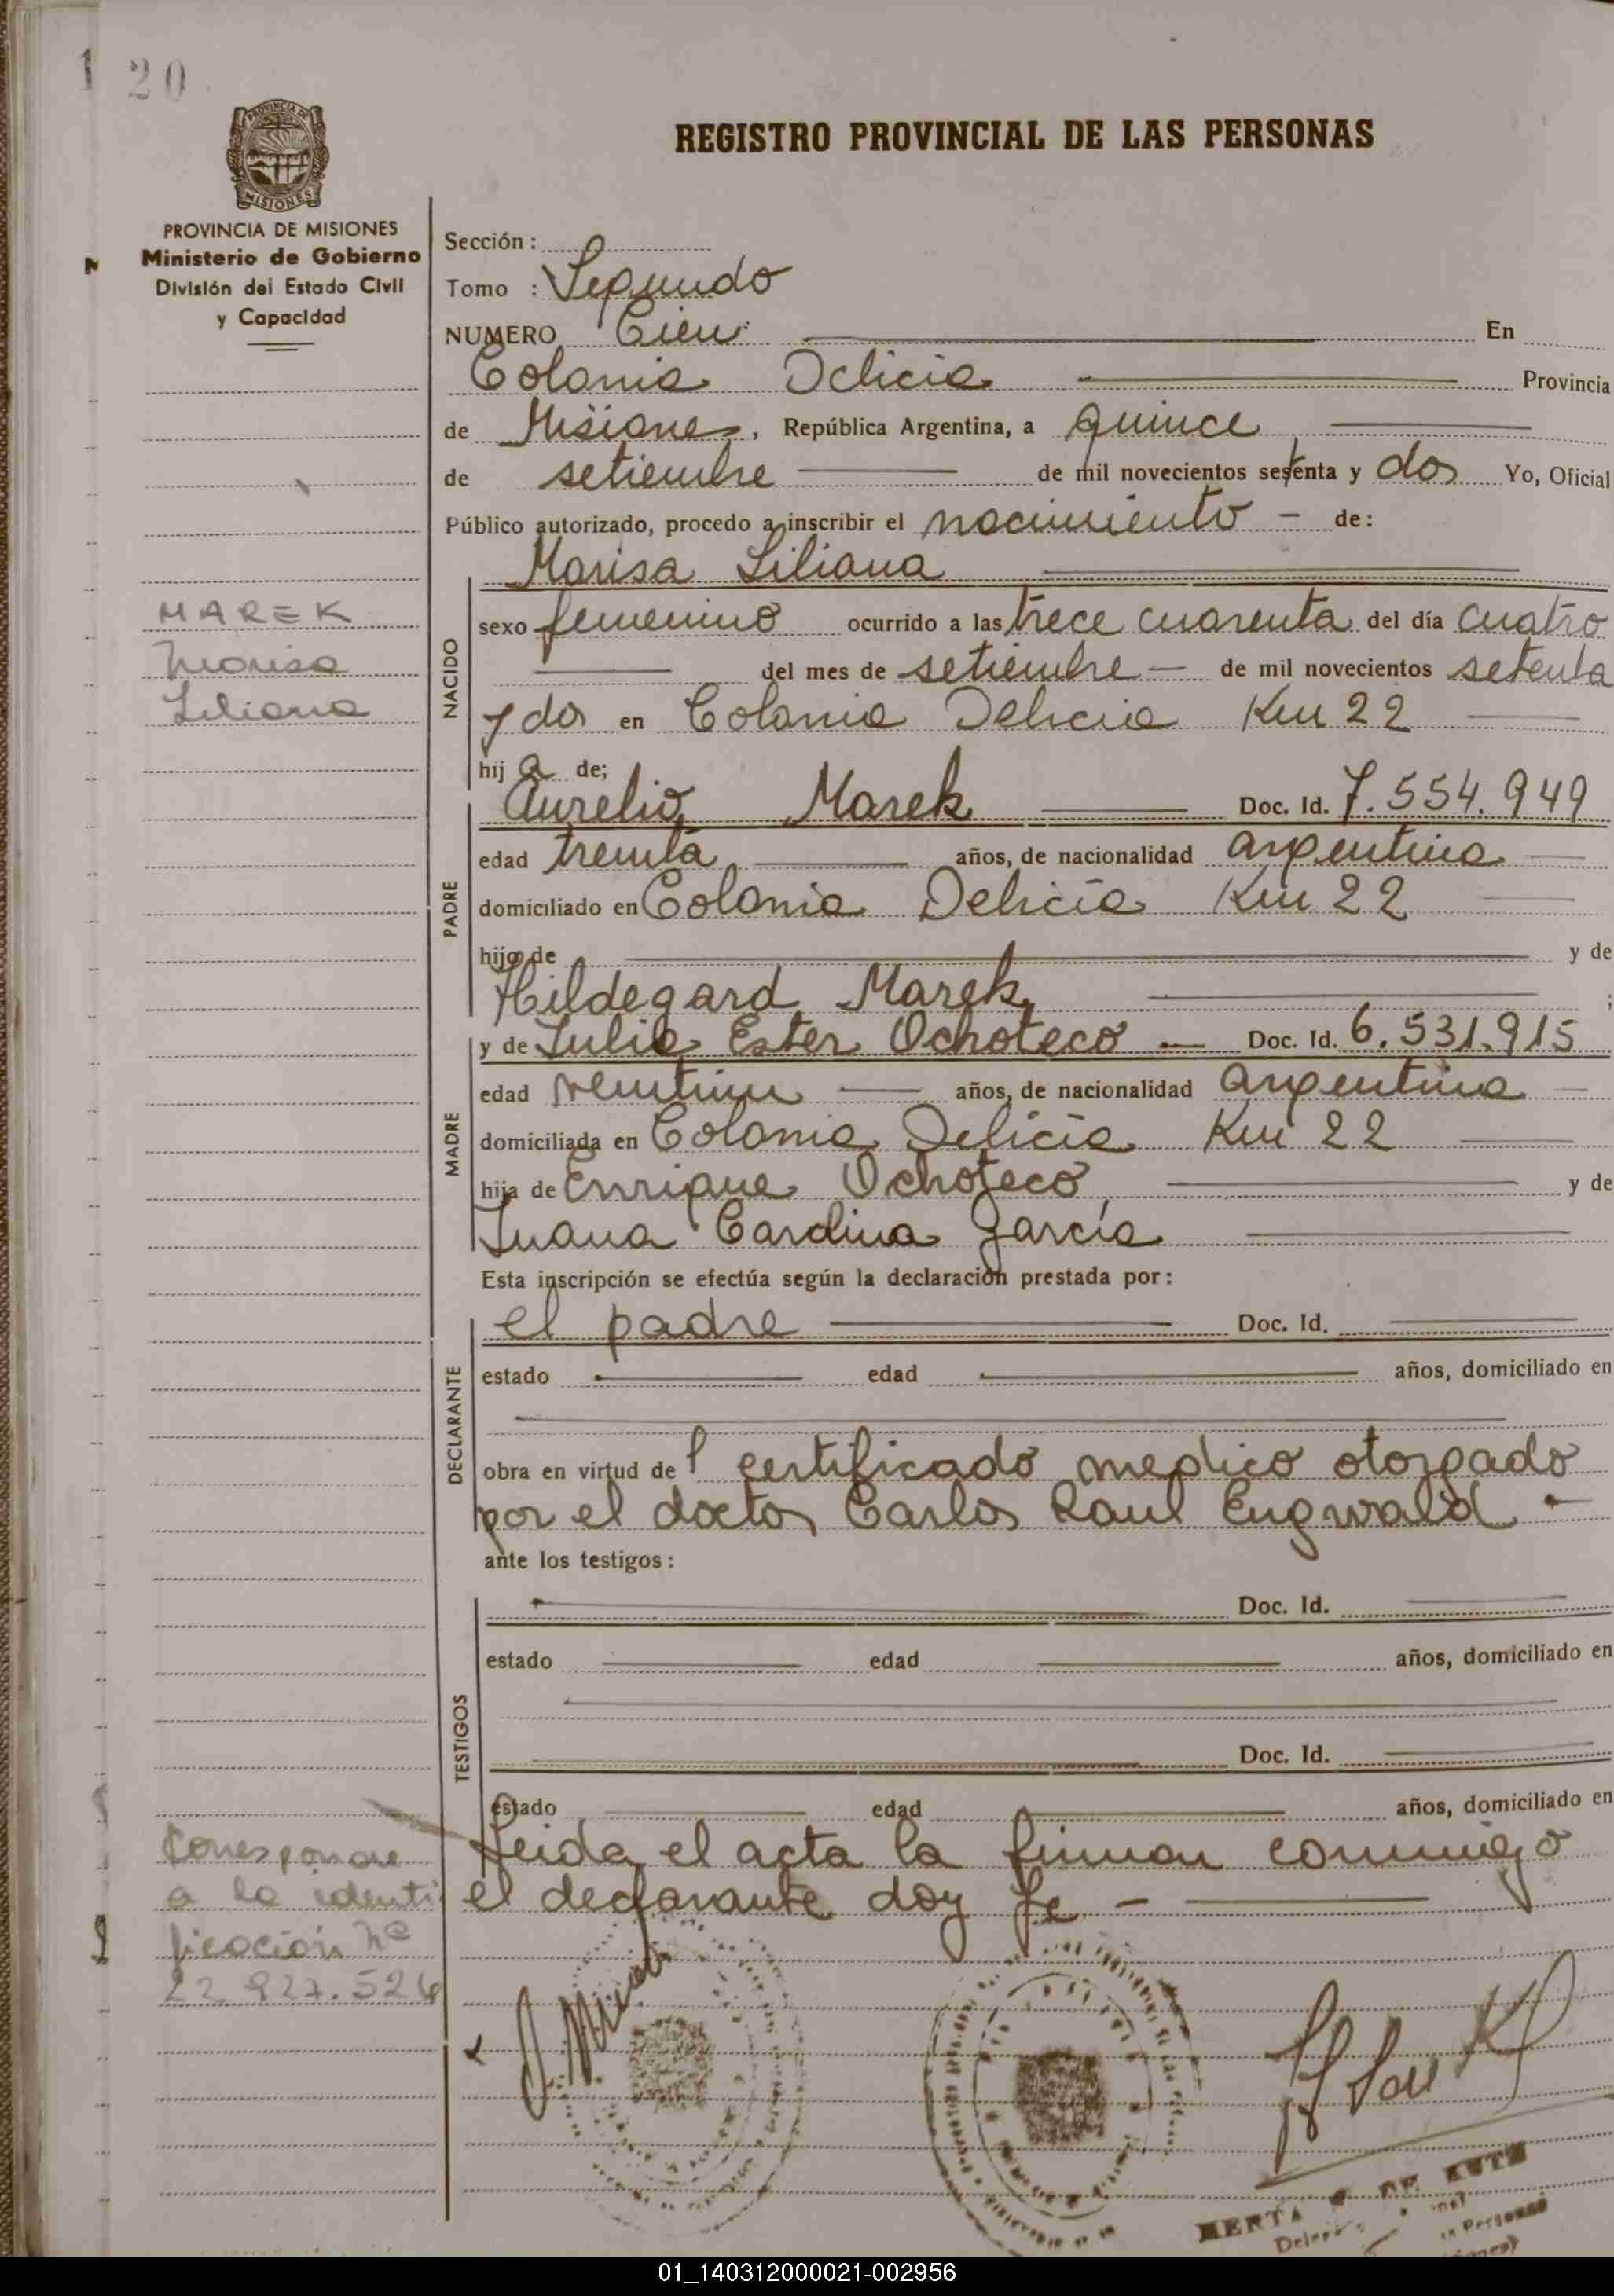 1 20
REGISTRO PROVINCIAL DE LAS PERSONAS
PROVINCIA DE MISIONES
PROVINCIA DE MISIONES
Ministerio de Gobierno
División del Estado Civil
y Capacidad
Sección :
Tomo : Segundo
NUMERO Cien En
Colonia Delicia Provincia
de Misiones, República Argentina, a quince
de setiembre de mil novecientos setenta y dos Yo, Oficial
Público autorizado, procedo a inscribir el nacimiento - de:
Marisa Liliana
MAREK
Marisa
Liliana
NACIDO
sexo femenino ocurrido a las trece cuarenta del día cuatro
del mes de setiembre de mil novecientos setenta
y dos en Colonia Delicia Km 22
hij a de;
PADRE
Aurelio Marek Doc. Id. 7.554.949
edad treinta años, de nacionalidad argentina
domiciliado en Colonia Delicia Km 22
hijo de y de
Hildegard Marek ;
MADRE
y de Julia Ester Ochoteco Doc. Id. 6.531.915
edad veintiun años, de nacionalidad argentina
domiciliada en Colonia Delicia Km 22
hija de Enrique Ochoteco y de
Juana Carolina García
Esta inscripción se efectúa según la declaración prestada por :
DECLARANTE
el padre Doc. Id.
estado edad años, domiciliado en
obra en virtud de l certificado medico otorgado
por el doctor Carlos Raul Engwald
ante los testigos :
TESTIGOS
Doc. Id.
estado edad años, domiciliado en
Doc. Id.
estado edad años, domiciliado en
Leida el acta la firman conmigo
el declarante doy fe -
Corresponde
a la identi
ficación Nº
22.827.526
HERTA DE KUTZ
01_140312000021-002956